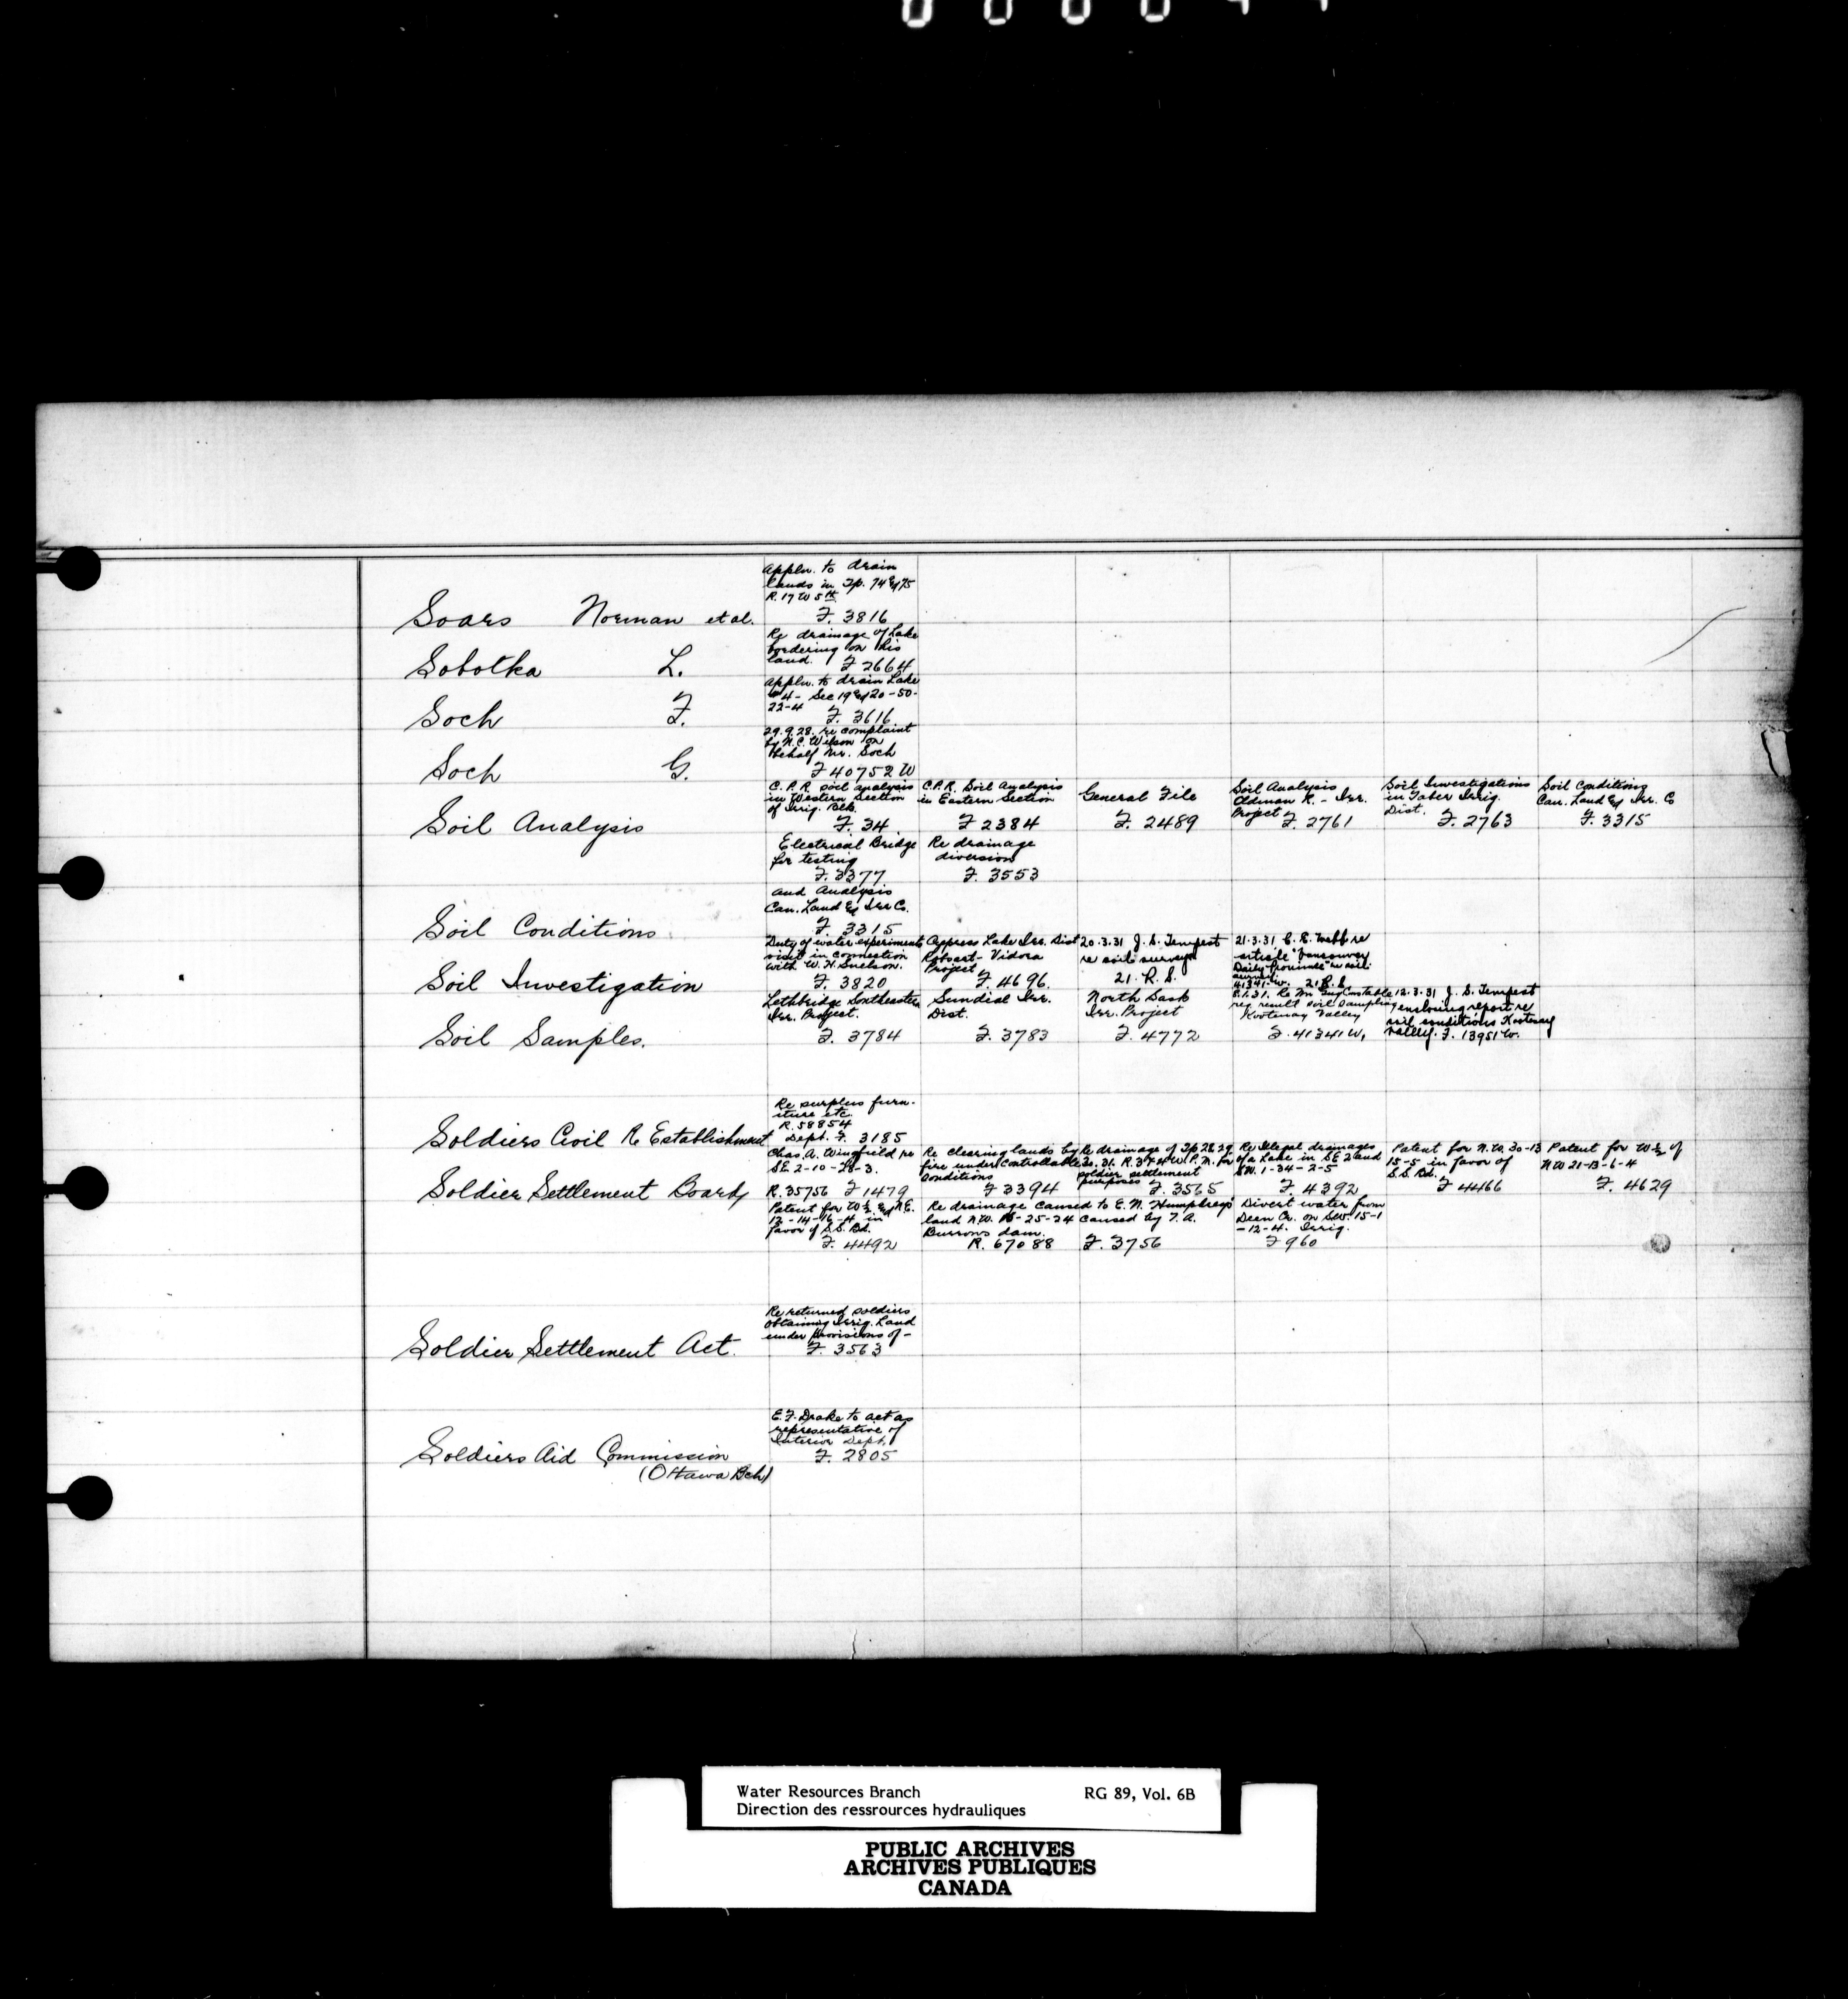 Appln. to drain
lands in Tp. 74 & 75
R. 17 W 5th
Soars Norman et al. F. 3816
Re drainage of Lake
bordering on his
land.
Sobotka L. F 2664
Appln. to drain Lake
Sec 19 & 20-50-
22-4
Soch F. F. 3616
29.9.28. re complaint
by N.C. Wilson on
behalf Mr. Soch
Soch G. F 40752 W
C.P.R. soil analysis
in Western Section
of Irrig. Blk.
F. 34
C.P.R. Soil Analysis
in Eastern Section
F 2384
General File
F. 2489
Soil Analysis
Oldman R. - Irr.
Project F. 2761
Soil Investigations
in Taber Irrig.
Dist. F. 2763
Soil Conditions
Can. Land & Irr. Co
F. 3315
Soil Analysis
Electrical Bridge
for testing
F. 3377
Re drainage
diversion
F. 3553
and Analysis
Can. Land & Irr Co.
Soil Conditions F. 3315
Duty of water experiments
visit in connection
with W. H. Snelson.
F. 3820
Cypress Lake Irr. Dist
Robsart - Vidora
Project F. 4696.
20.3.31 J. S. Tempest
re soil surveys
21. R. S.
21.3.31 C. E. Webb re
article "Vancouver
Daily Province" re soil
survey.
41341-W. 21 R. S.
Soil Investigation
Lethbridge Southeastern
Irr. Project.
F. 3784
Sundial Irr.
Dist.
F. 3783
North Sask
Irr. Project
F. 4772
reg result soil Sampling
Kootenay Valley
F. 41341 W.
12.3.31 J. S. Tempest
enclosing report re
soil conditions Kootenay
Valley. F. 13951 W.
Soil Samples.
Re surplus furn-
iture etc.
R. 58854
Dept. F. 3185
Soldiers Civil Re Establishment
Chas. A. Wingfield re
SE 2-10-28-3.
R. 35756 F 1479
Re clearing lands by
fire under controllable
conditions
F 3394
Re drainage of Tp 28.29
30.31. R. 3 & 4 W. P. M. for
soldier settlement
purposes F. 3565
Re Illegal drainages
of a Lake in SE 2 and
SW. 1-34-2-5
F. 4392
Patent for N.W. 30-13
15-5 in favor of
S.S. Bd.
F 4466
Patent for W½ of
NW 21-13-6-4
F. 4629
Soldier Settlement Board
Patent for W½ & N.E.
12-14-16-4 in
favor of S.S. Bd.
F. 4492
Re drainage caused to E. N. Humphreys
land N.W. 15-25-24 caused by T. A.
Burrows dam.
R. 67088 F. 3756
Divert water from
Deen Cr. on SW. 15-1
-12-4. Irrig.
F 960
Re returned soldiers
obtaining Irrig. Land
under provisions of -
Soldier Settlement Act. F. 3563
E. F. Drake to act as
representative of
Interior Dept.
Soldiers Aid Commission F. 2805
(Ottawa Bch)
Water Resources Branch RG 89, Vol. 6B
Direction des ressrources hydrauliques
PUBLIC ARCHIVES
ARCHIVES PUBLIQUES
CANADA